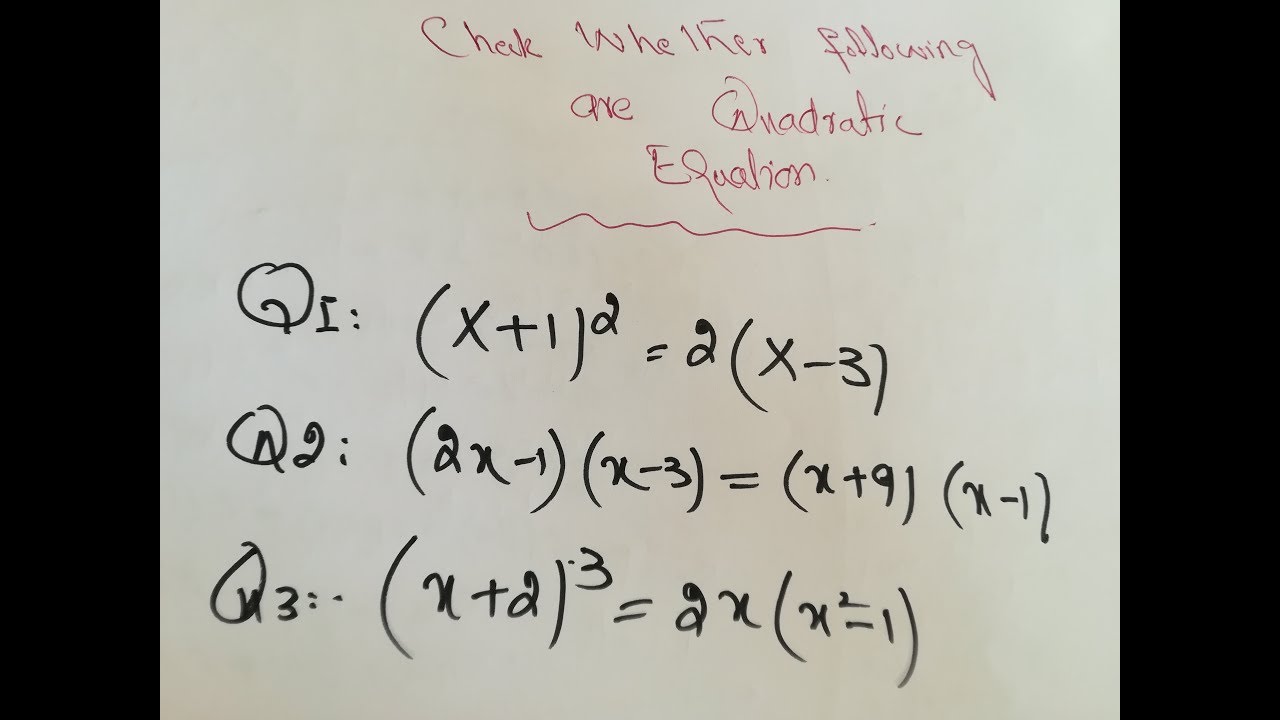 Check Whether following
are Quadratic
Equation.
Q1: (x+1)² = 2(x-3)
Q2: (2x-1)(x-3) = (x+9)(x-1)
Q3:- (x+2)³ = 2x(x²-1)